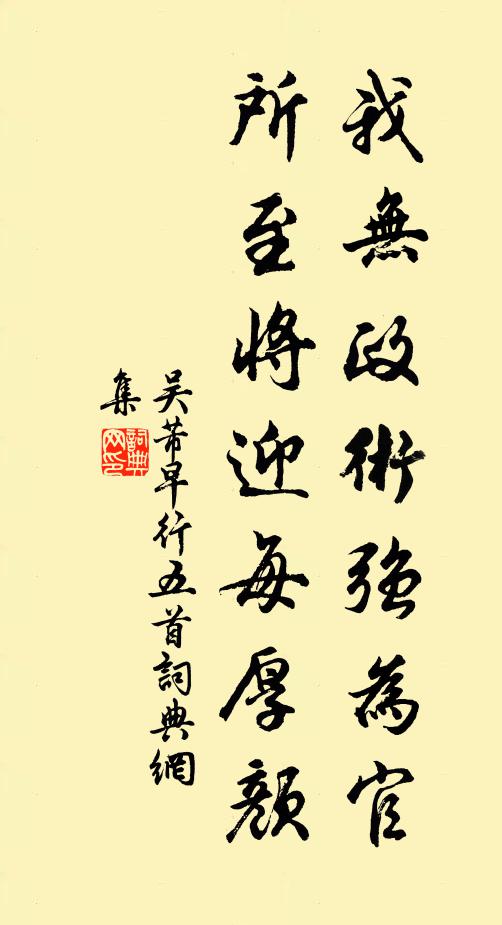 我無政術強為官
所至將迎每厚顏
吳芾早行五首詞典網
集
詞典
网印